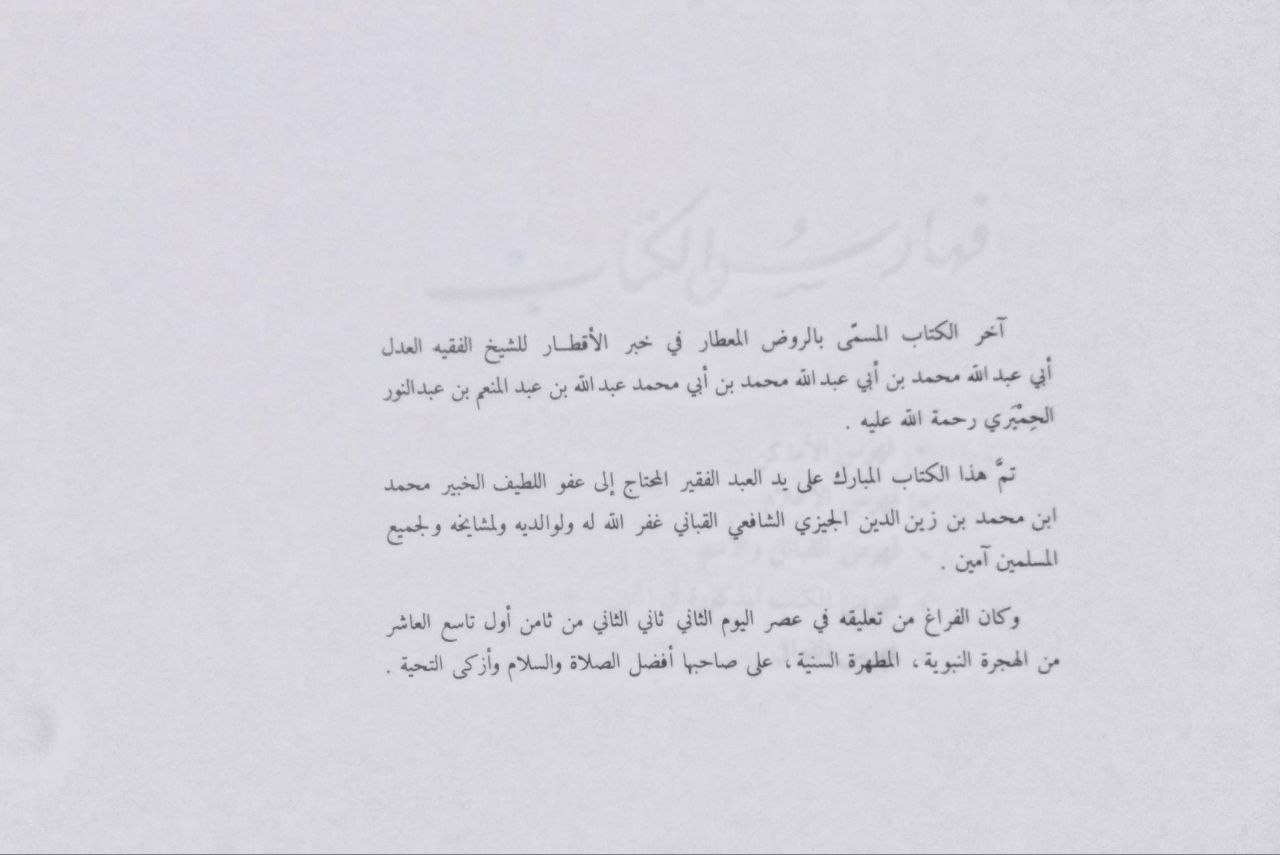 فهارس الكتاب
آخر الكتاب المسمّى بالروض المعطار في خبر الأقطـار للشيخ الفقيه العدل
أبي عبد الله محمد بن أبي عبد الله محمد بن أبي محمد عبد الله بن عبد المنعم بن عبد النور
الحِمْيَري رحمة الله عليه .
تمَّ هذا الكتاب المبارك على يد العبد الفقير المحتاج إلى عفو اللطيف الخبير محمد
ابن محمد بن زين الدين الجيزي الشافعي القباني غفر الله له ولوالديه ولمشايخه ولجميع
المسلمين آمين .
وكان الفراغ من تعليقه في عصر اليوم الثاني ثاني الثاني من ثامن أول تاسع العاشر
من الهجرة النبوية ، المطهرة السنية ، على صاحبها أفضل الصلاة والسلام وأزكى التحية .